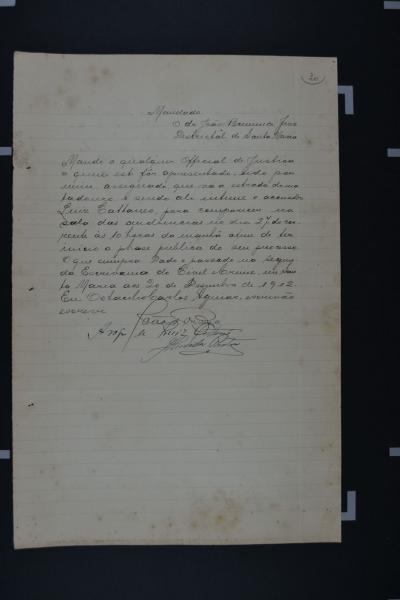 20
Mandado
O dr João Bonuma, Juiz
Districtal de Santa Maria
Mando a qualquer Official de Justiça
a quem este fôr apresentado, indo por
mim assignado que vá a estrada
e sendo ahi intime o accusado
Luiz Cattaneo, para comparecer na
sala das audiencias no dia 27 do cor
rente ás 10 horas da manhã afim de ter
inicio a phase publica do seu processo.
O que cumpra. Dado e passado na segun
da Escrivania do Civel e Crime, em San
ta Maria aos 20 de Dezembro de 1912.
Eu Octacilio Carlos Aguiar, escrivão
escrevi
João
Luiz